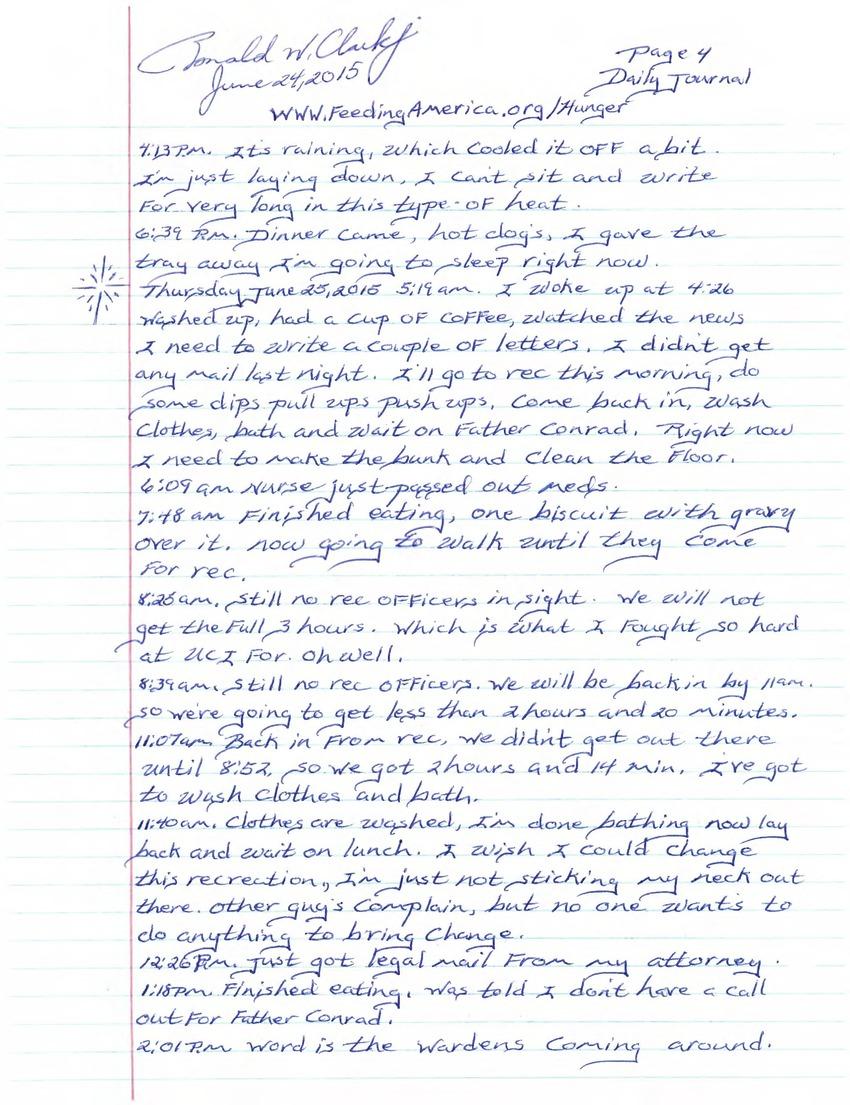 Ronald W. Clark Jr
June 24, 2015
Page 4
Daily Journal
WWW.FeedingAmerica.org/Hunger
4:13 P.M. It's raining, which cooled it off a bit.
I'm just laying down, I can't sit and write
for very long in this type of heat.
6:39 P.M. Dinner came, hot dog's, I gave the
tray away I'm going to sleep right now.
Thursday June 25, 2015 5:19 am. I woke up at 4:26
washed up, had a cup of coffee, watched the news
I need to write a couple of letters. I didn't get
any mail last night. I'll go to rec this morning, do
some dips pull ups push ups. Come back in, wash
clothes, bath and wait on Father Conrad. Right now
I need to make the bunk and clean the floor.
6:09 am Nurse just passed out meds.
7:48 am Finished eating, one biscuit with gravy
over it. now going to walk until they come
for rec.
8:26 am. still no rec officers in sight. We will not
get the full 3 hours. Which is what I fought so hard
at UCI for. Oh well.
8:39 am. still no rec officers. We will be back in by 11 am.
so we're going to get less than 2 hours and 20 minutes.
11:07 am Back in from rec, we didn't get out there
until 8:52, so we got 2 hours and 14 min. I've got
to wash clothes and bath.
11:40 am. Clothes are washed, I'm done bathing now lay
back and wait on lunch. I wish I could change
this recreation, I'm just not sticking my neck out
there. other guy's complain, but no one wants to
do anything to bring change.
12:26 P.M. Just got legal mail from my attorney.
1:18 PM. Finished eating. Was told I don't have a call
out for Father Conrad.
2:01 P.M Word is the Wardens coming around.